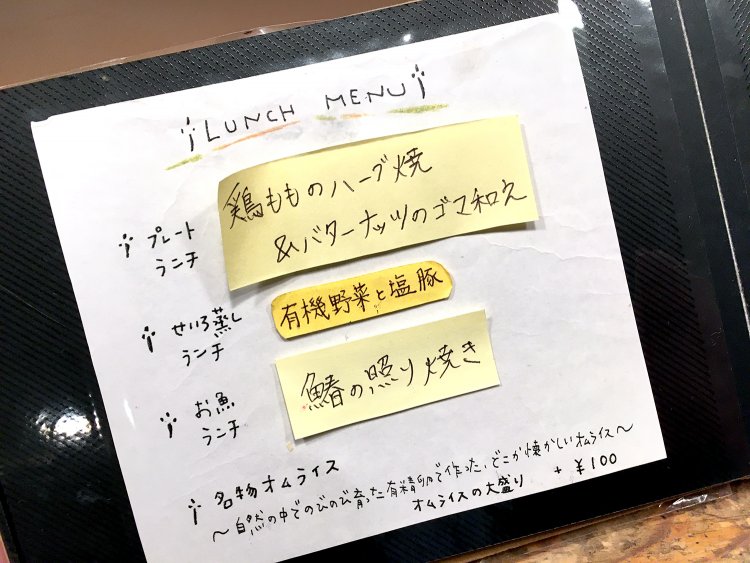 LUNCH MENU
プレート
ランチ
鶏もものハーブ焼
&バターナッツのゴマ和え
せいろ蒸し
ランチ
有機野菜と塩豚
お魚
ランチ
鰆の照り焼き
名物オムライス
〜自然の中でのびのび育った有精卵で作った、どこか懐かしいオムライス〜
オムライスの大盛り + ¥100